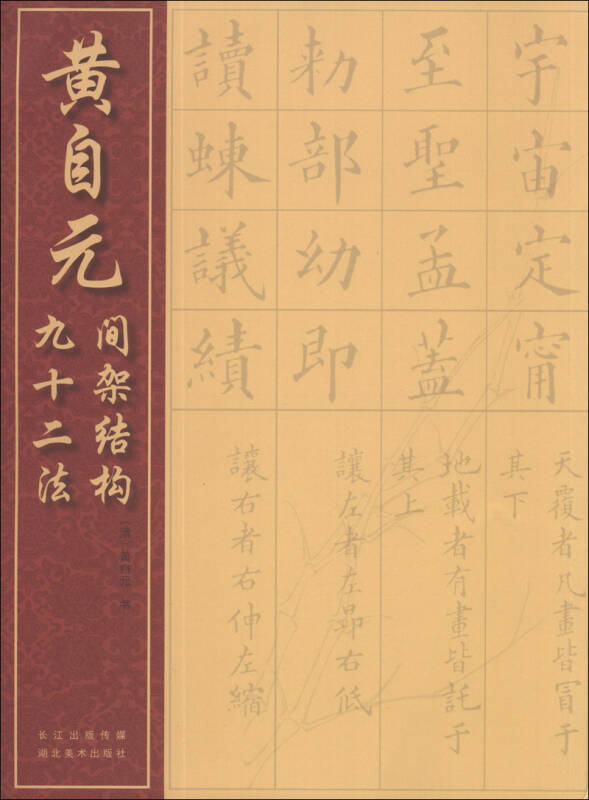 黄自元
间架结构
九十二法
[清]黄自元 书
长江出版传媒
湖北美术出版社
宇宙定甯
至聖孟蓋
勅部幼即
讀蝀議績
天覆者凡畫皆冒于
其下
地載者有畫皆託于
其上
讓左者左昻右低
讓右者右伸左縮